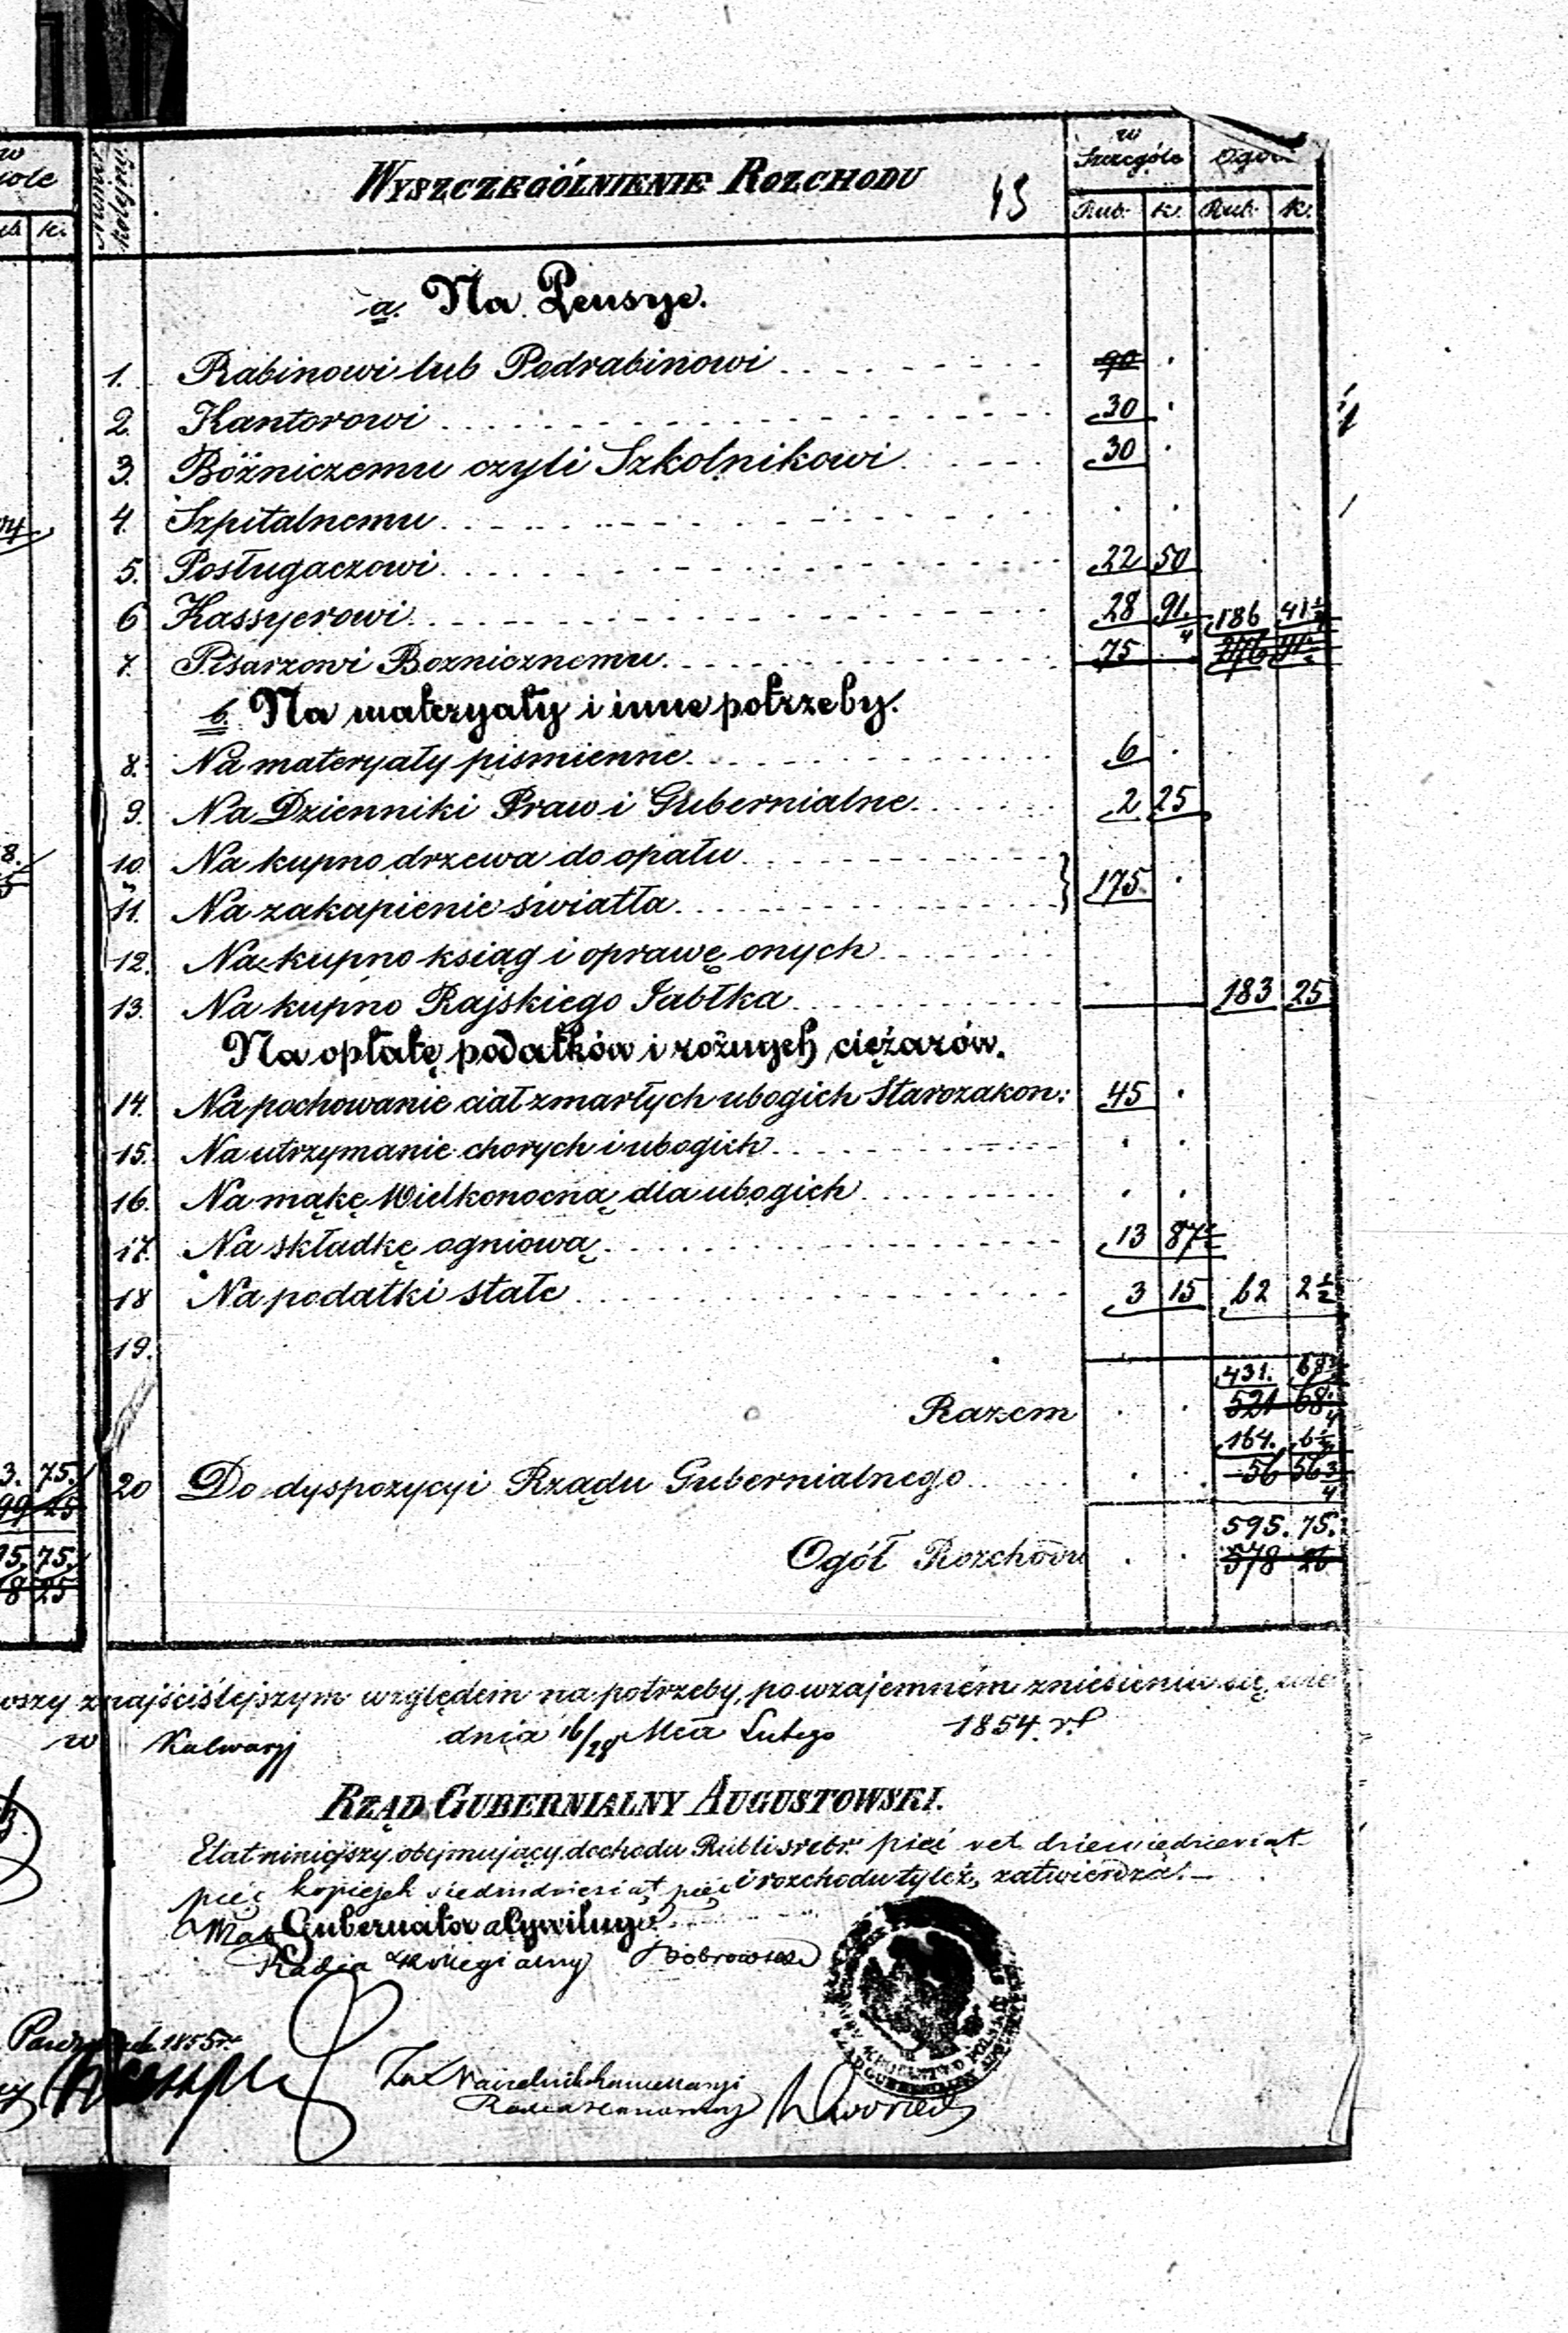 WYSZCZEGÓLNIENIE ROZCHODU
w Szczególe
Numer kolejny
Rub. k. Rub. k.
a. Na Pensye.
1. Rabinowi lub Podrabinowi 90
2. Kantorowi 30
3. Bóżniczemu czyli Szkolnikowi 30
4. Szpitalnemu
5. Posługaczowi 22 50
6 Kassyerowi 28 91 186 41
7. Pisarzowi Boznicznemu 75 276
b. Na materyały i inne potrzeby.
8. Na materyały piśmienne 6
9. Na Dzienniki Praw i Gubernialne 2 25
10. Na kupno drzewa do opału
11. Na zakapienie światła 175
12. Na kupno ksiąg i oprawę onych
13. Na kupno Rajskiego Jabłka 183 25
Na opłatę podatków i rożnych ciężarów.
14. Na pochowanie ciał zmarłych ubogich Starozakon: 45
15. Na utrzymanie chorych i ubogich
16. Na mąkę Wielkonocną dla ubogich
17. Na składkę ogniową 13 87½
18 Na podatki stałe 3 15 62 2½
19.
431. 68
Razem 521 68
164. 6
20 Do dyspozycyi Rządu Gubernialnego 56 56¾
595. 75.
Ogół Rozchodu 578 25
3. 75.
99 25
95. 75.
8 25
znajściślejszym względem na potrzeby, po wzajemném zniesieniu się
w Kalwaryi dnia 16/28 Mca Lutego 1854. r.
RZĄD GUBERNIALNY AUGUSTOWSKI.
Etat niniejszy obejmujący dochodu Rubli srebr. pięć set dziewięćdziesiąt
pięć kopiejek siedmdziesiąt pięć i rozchodu tyleż, zatwierdza.—
Gubernatora Cywilnego
Radca Kollegialny
1855 r.
Za Naczelnika Kancellaryi